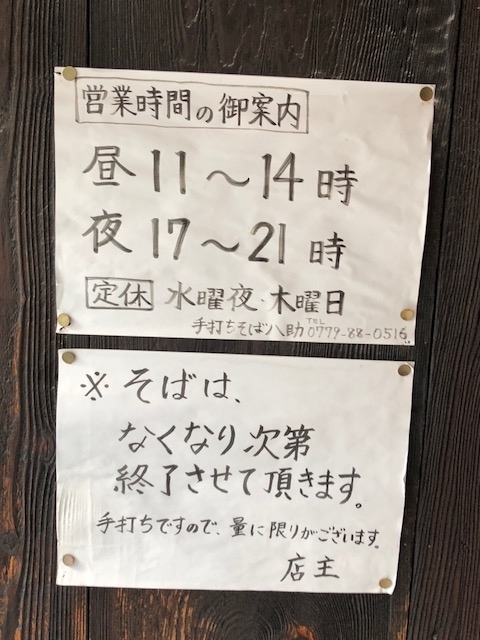 営業時間の御案内
昼 11～14時
夜 17～21時
定休 水曜夜・木曜日
手打ちそば 八助 TEL 0779-88-0516
※ そばは、
なくなり次第
終了させて頂きます。
手打ちですので、量に限りがございます。
店主